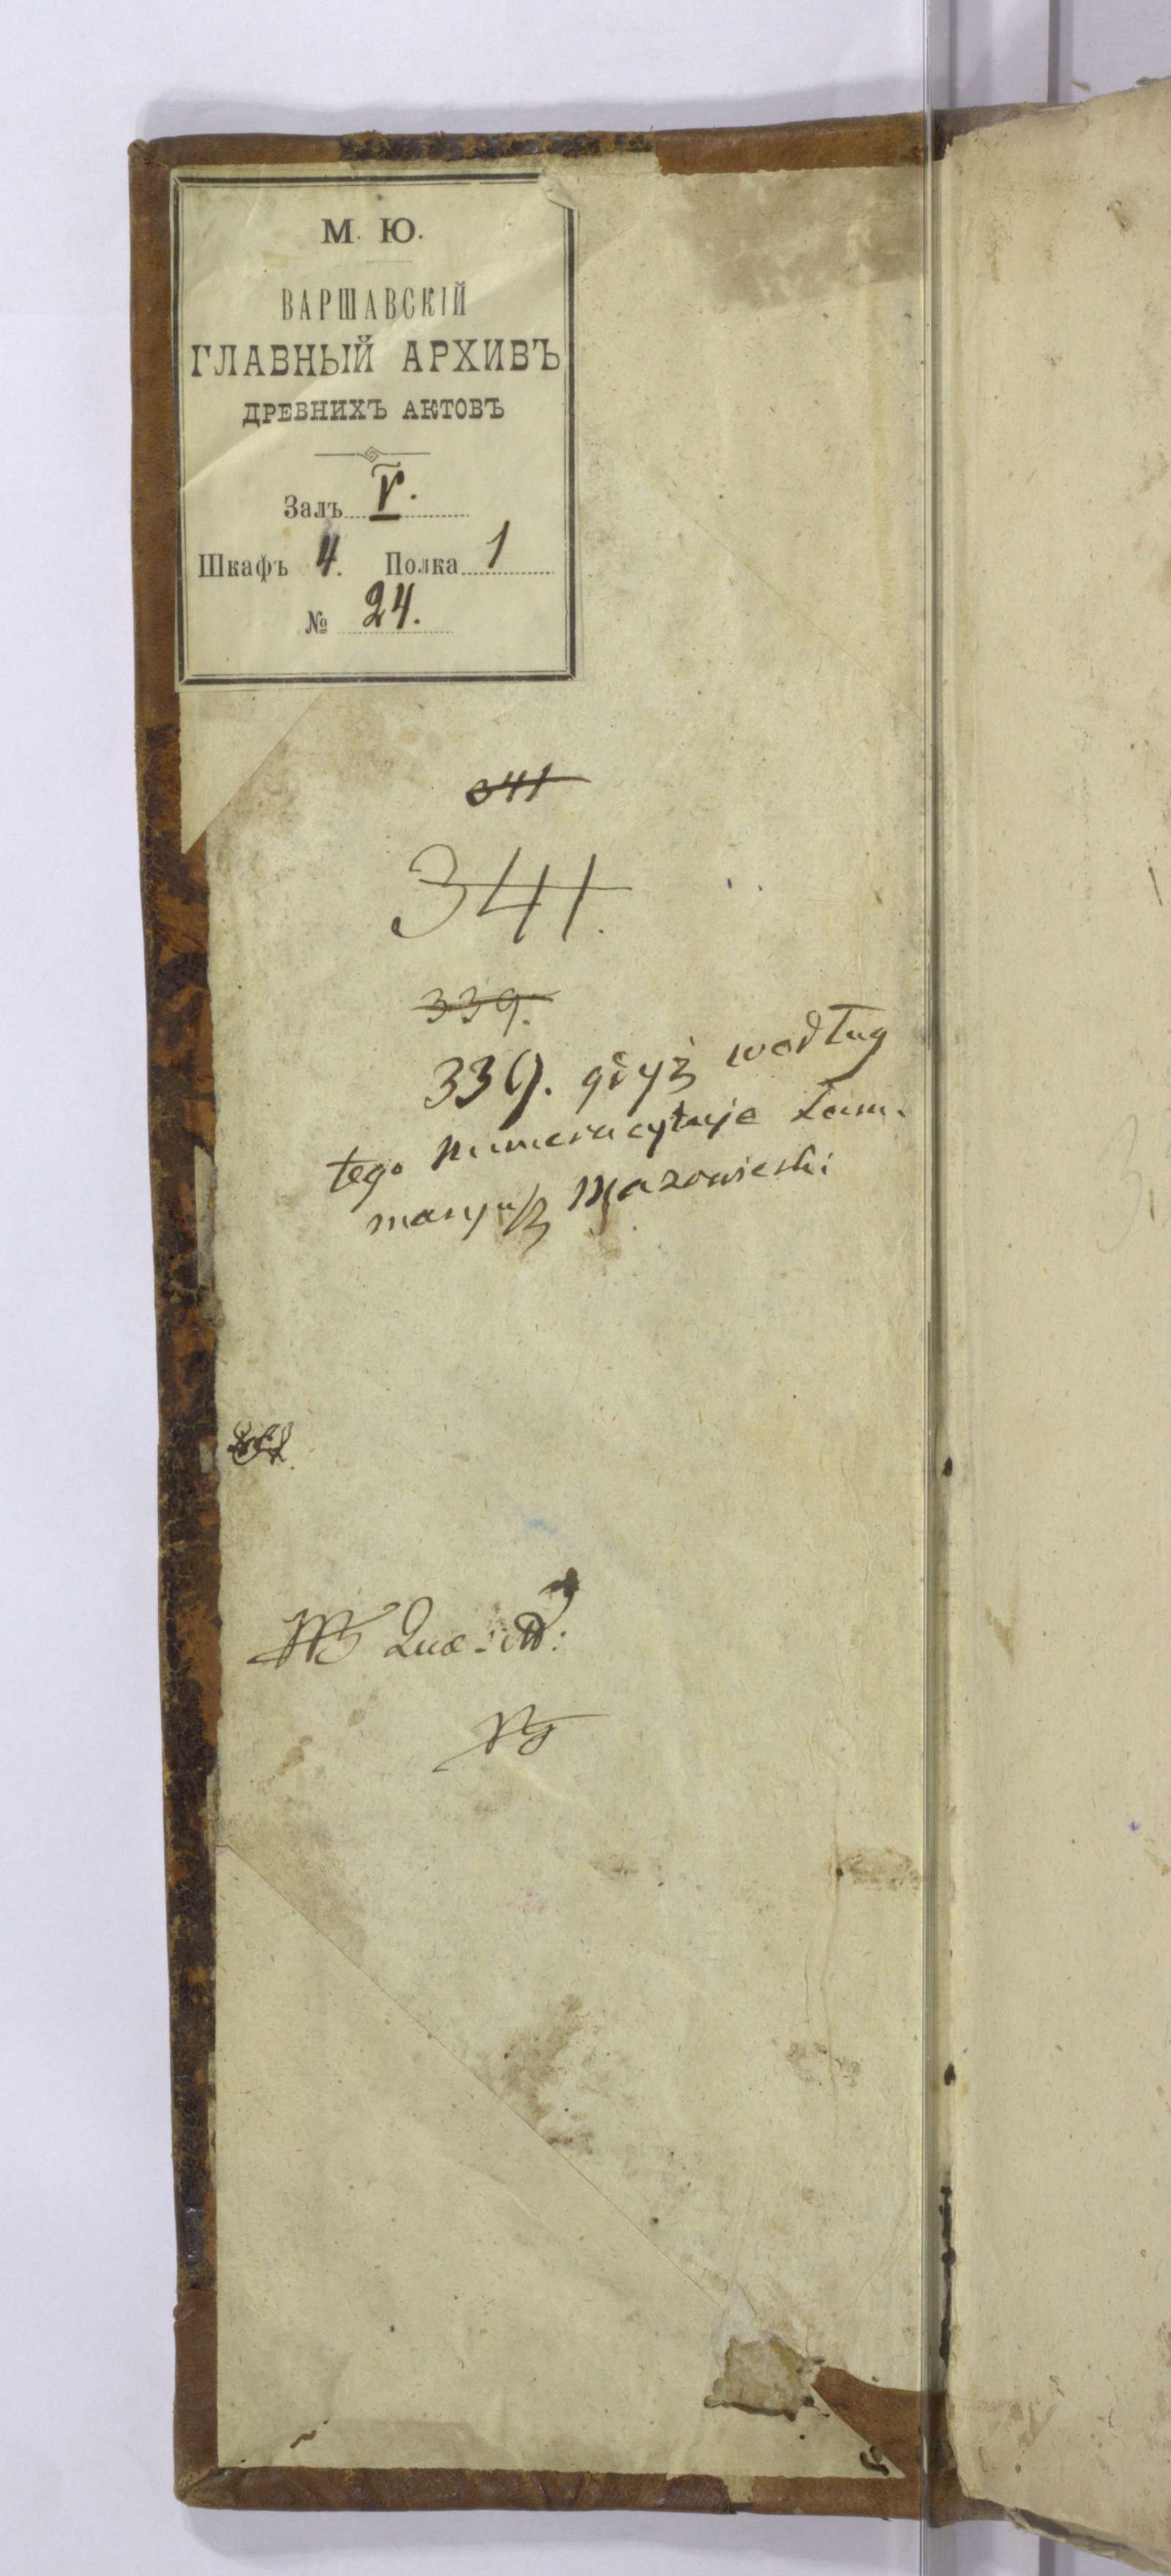 М. Ю.
ВАРШАВСКІЙ
ГЛАВНЫЙ АРХИВЪ
ДРЕВНИХЪ АКТОВЪ
Залъ V.
Шкафъ 4. Полка 1
№ 24.
341
341.
339.
339. gdyż według
tego numeru cytuje Sum-
maryusz Mazowiecki